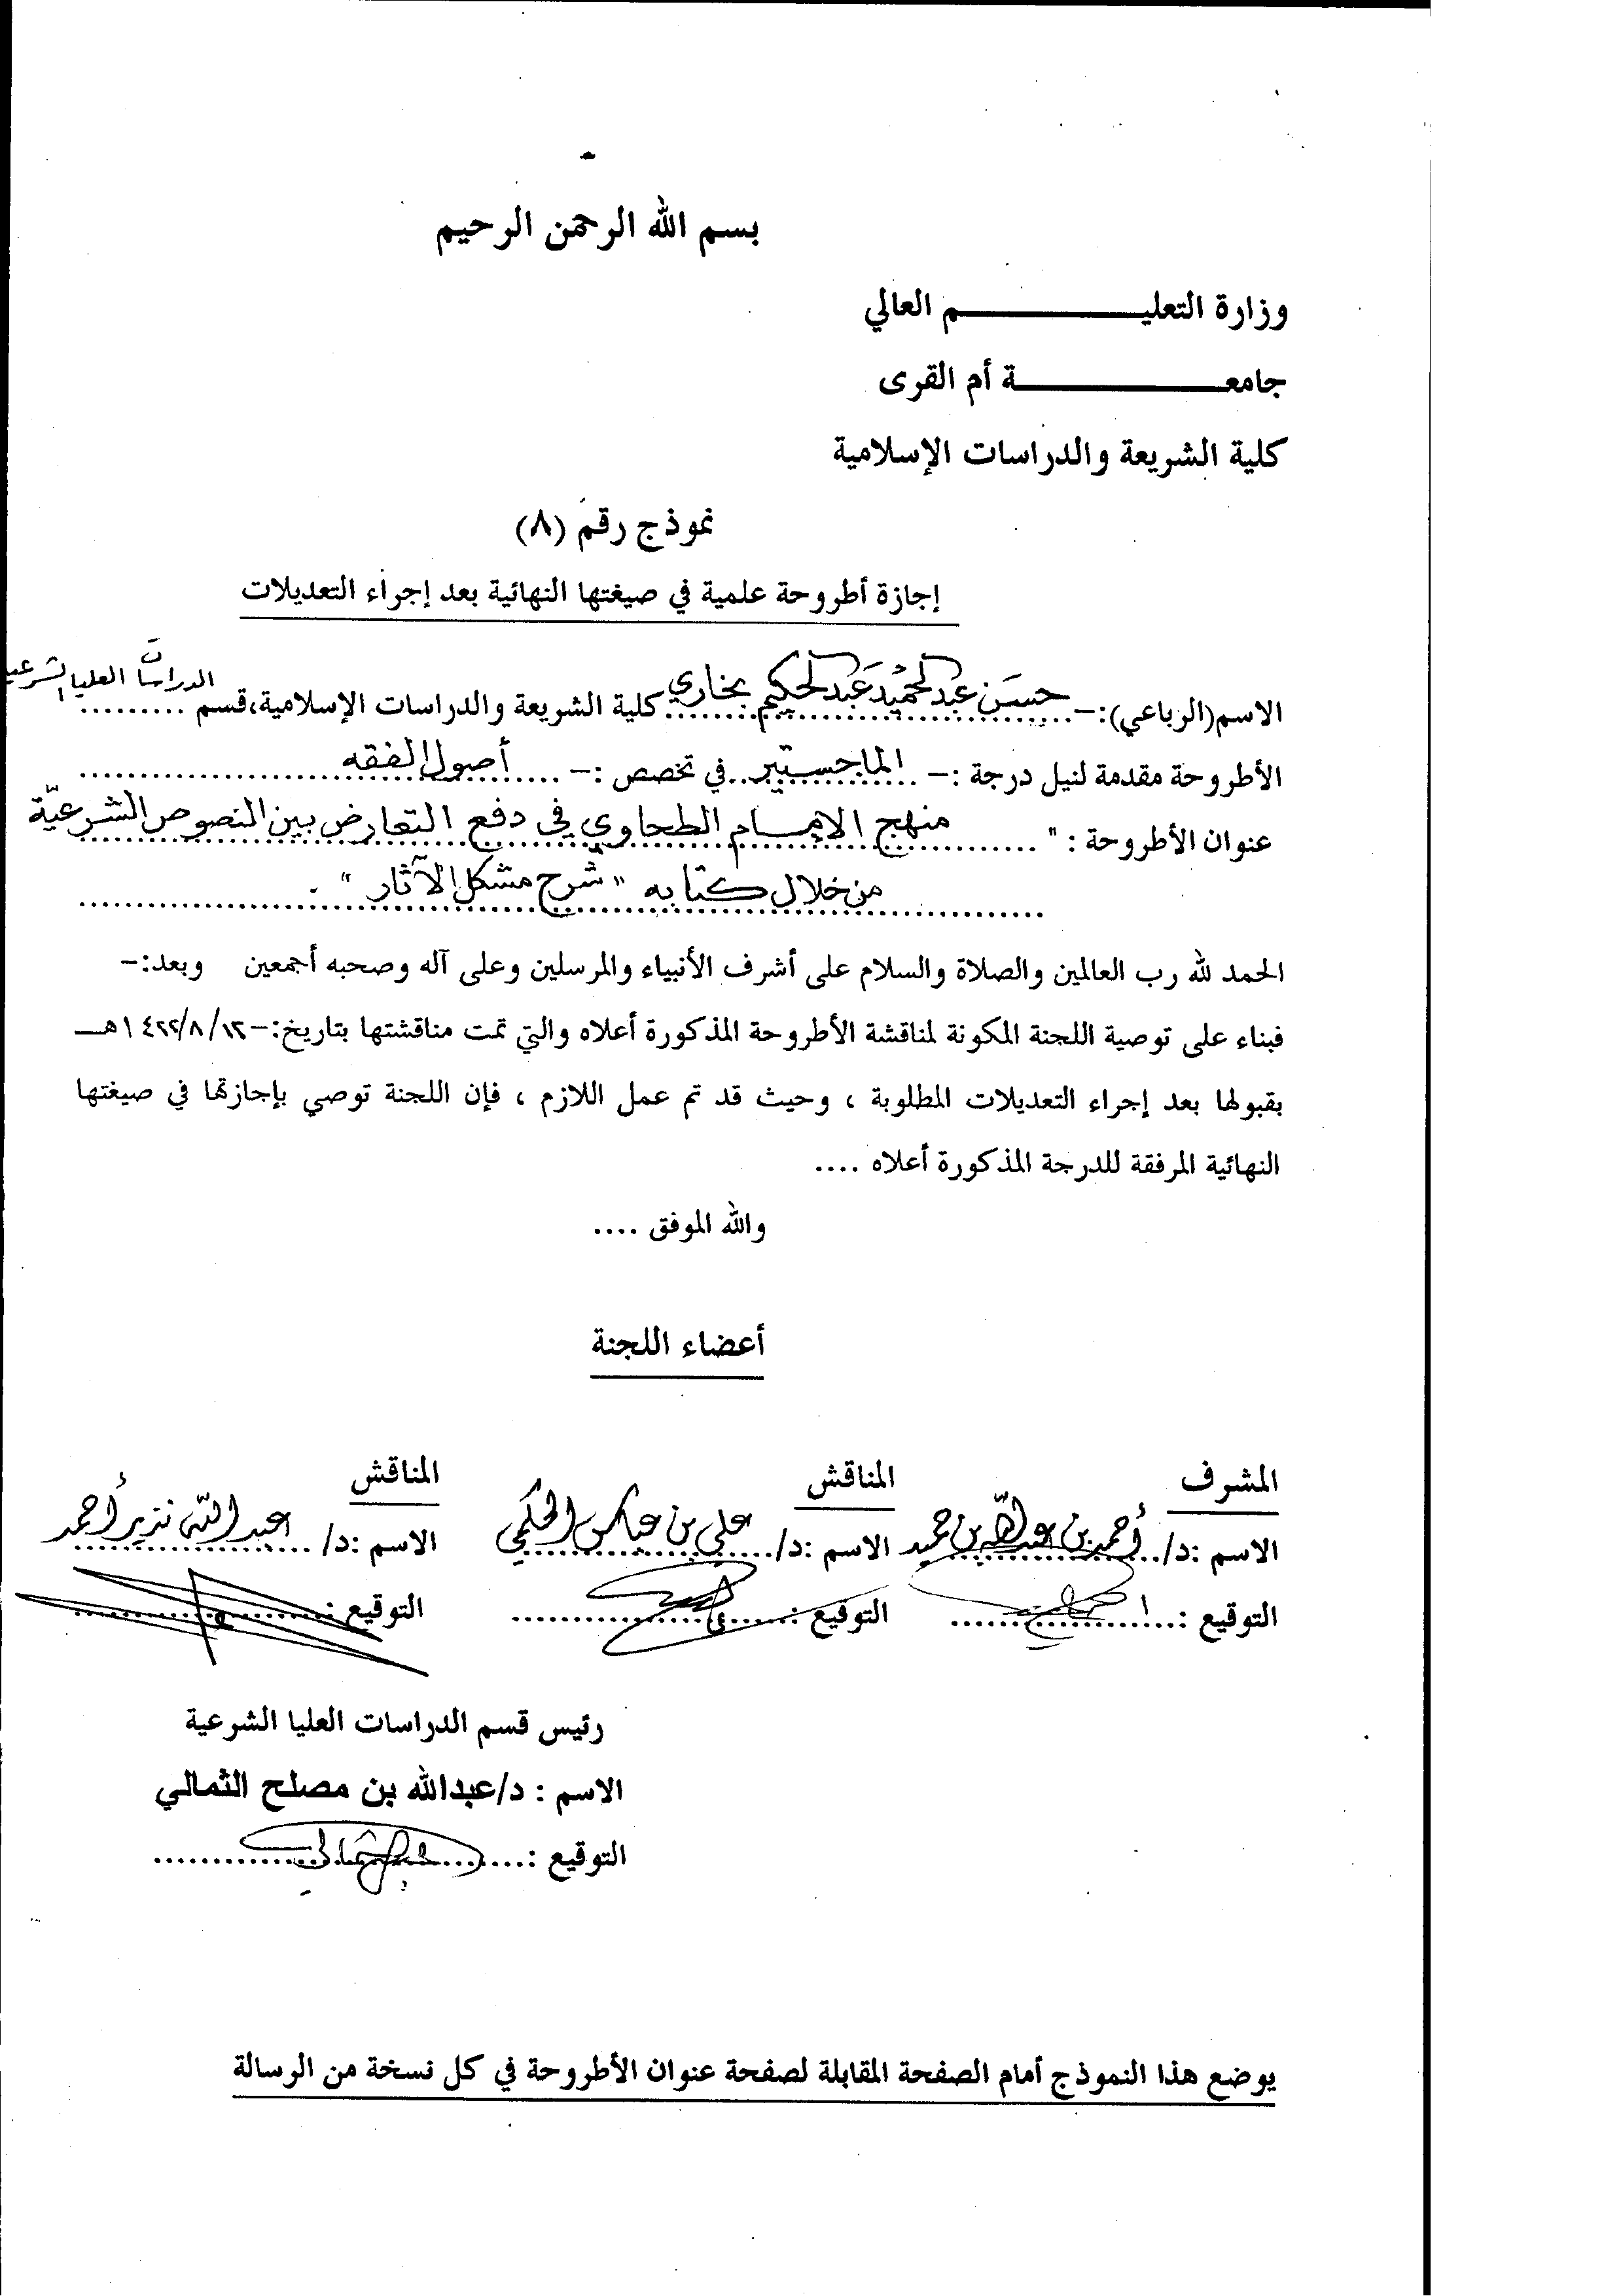 بسم الله الرحمن الرحيم
وزارة التعليـــــــــــــم العالي
جامعـــــــــــــة أم القرى
كلية الشريعة والدراسات الإسلامية
نموذج رقم (٨)
إجازة أطروحة علمية في صيغتها النهائية بعد إجراء التعديلات
الاسم(الرباعي):- حسن عبد الحميد عبد الحكيم بخاري كلية الشريعة والدراسات الإسلامية،قسم الدراسات العليا الشرعية
الأطروحة مقدمة لنيل درجة :- الماجستير في تخصص :- أصول الفقه
عنوان الأطروحة : " منهج الإمام الطحاوي في دفع التعارض بين النصوص الشرعيّة
من خلال كتابه " شرح مشكل الآثار " .
الحمد لله رب العالمين والصلاة والسلام على أشرف الأنبياء والمرسلين وعلى آله وصحبه أجمعين وبعد:-
فبناء على توصية اللجنة المكونة لمناقشة الأطروحة المذكورة أعلاه والتي تمت مناقشتها بتاريخ:- ١٤٢٢/٨/١٢هــ
بقبولها بعد إجراء التعديلات المطلوبة ، وحيث قد تم عمل اللازم ، فإن اللجنة توصي بإجازتها في صيغتها
النهائية المرفقة للدرجة المذكورة أعلاه ....
والله الموفق ....
أعضاء اللجنة
المشرف المناقش المناقش
الاسم :د/ أحمد بن عبد الله بن حميد الاسم :د/ علي بن عباس الحكمي الاسم :د/ عبد الله نذير أحمد
التوقيع : التوقيع : التوقيع :
رئيس قسم الدراسات العليا الشرعية
الاسم : د/عبدالله بن مصلح الثمالي
التوقيع :
يوضع هذا النموذج أمام الصفحة المقابلة لصفحة عنوان الأطروحة في كل نسخة من الرسالة